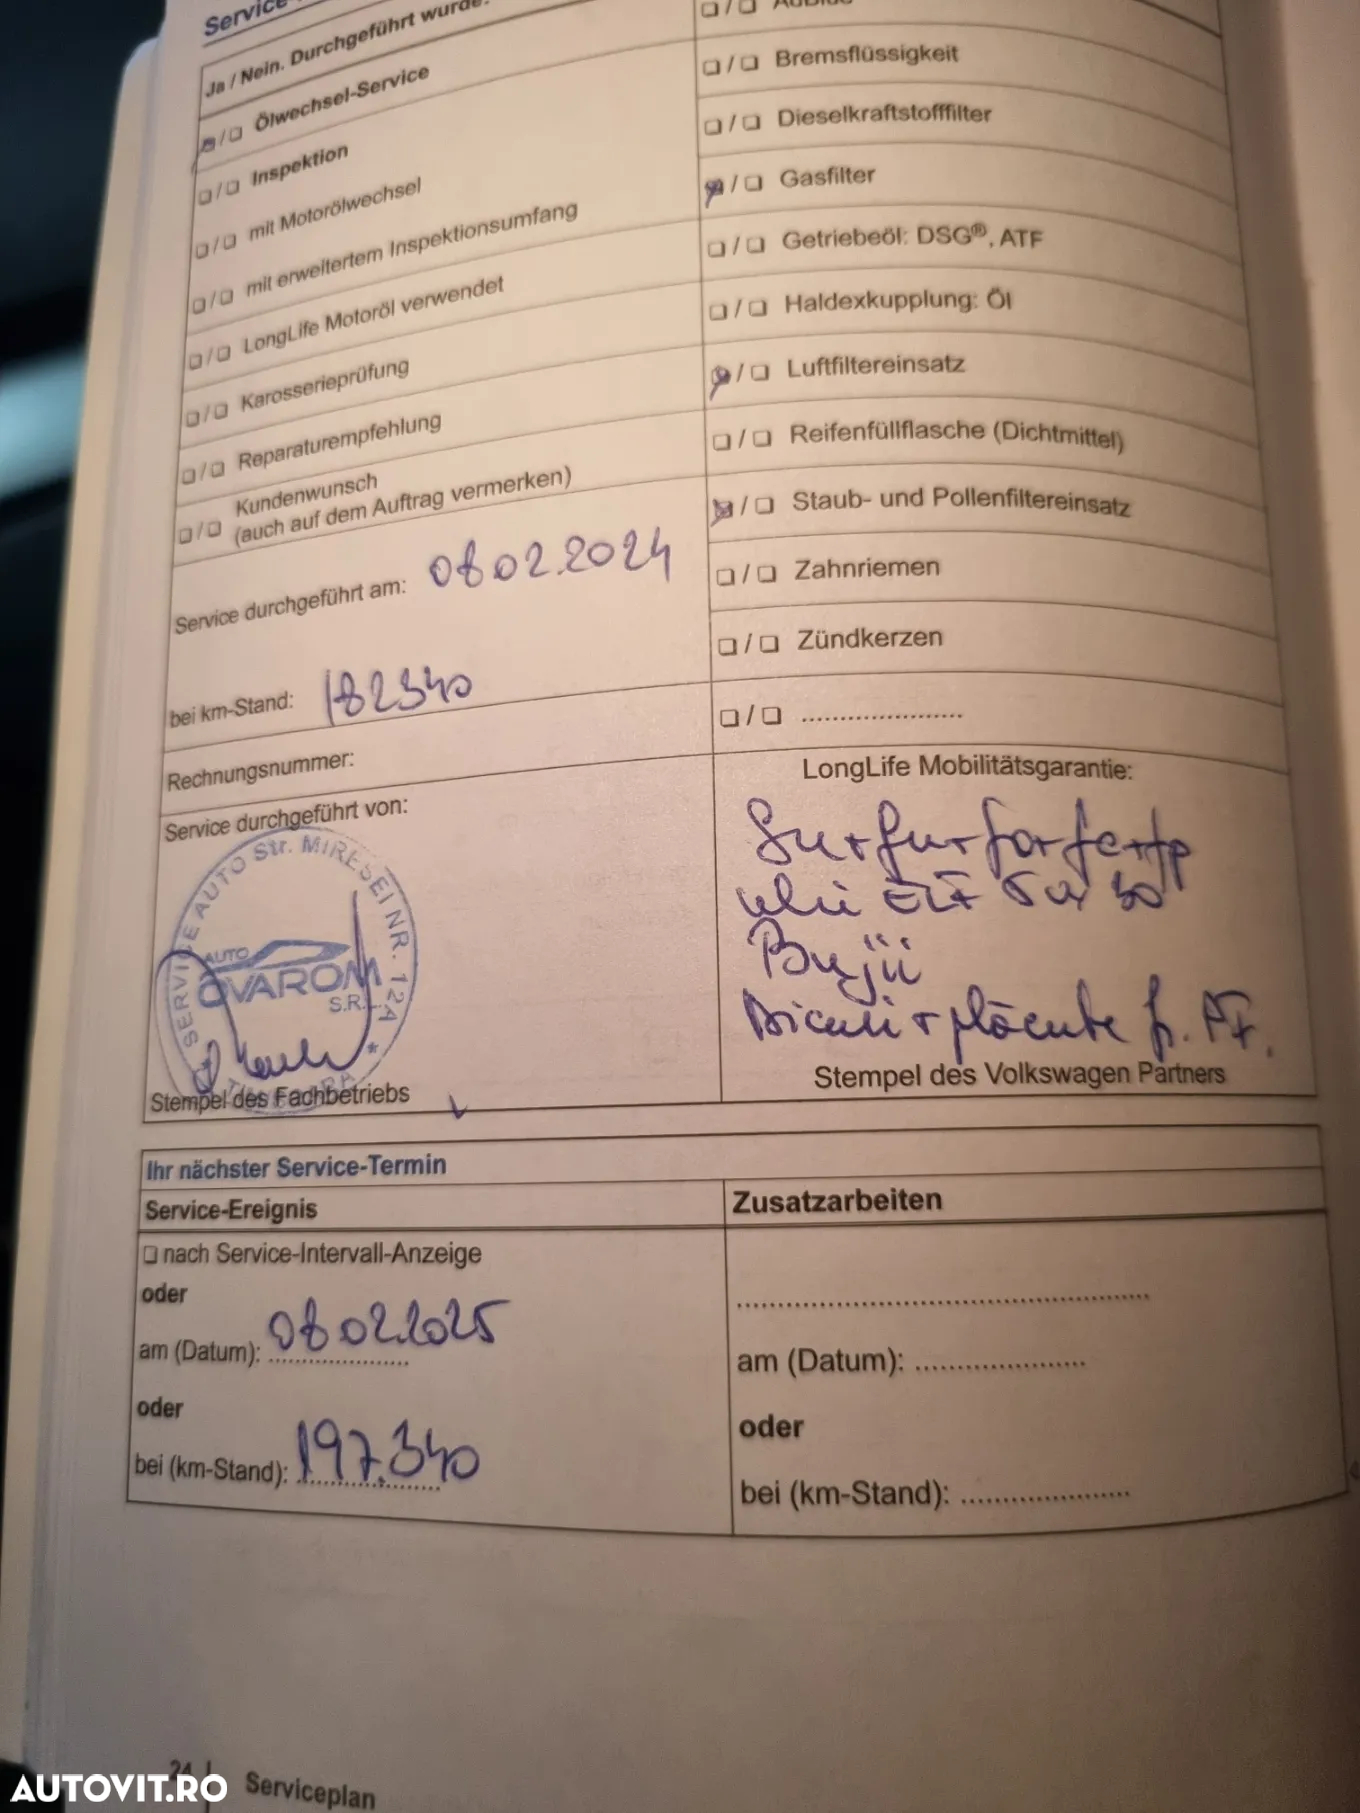 Service
Ja / Nein. Durchgeführt wurde:
☒/☐ Ölwechsel-Service
☐/☐ Inspektion
☐/☐ mit Motorölwechsel
☐/☐ mit erweitertem Inspektionsumfang
☐/☐ LongLife Motoröl verwendet
☐/☐ Karosserieprüfung
☐/☐ Reparaturempfehlung
☐/☐ Kundenwunsch
(auch auf dem Auftrag vermerken)
Service durchgeführt am: 08.02.2024
bei km-Stand: 182340
Rechnungsnummer:
Service durchgeführt von:
SERVICE AUTO Str. MIRESEI NR. 12A
AUTO
OVAROM
S.R.L.
Stempel des Fachbetriebs
☐/☐ AdBlue
☐/☐ Bremsflüssigkeit
☐/☐ Dieselkraftstofffilter
☒/☐ Gasfilter
☐/☐ Getriebeöl: DSG®, ATF
☐/☐ Haldexkupplung: Öl
☒/☐ Luftfiltereinsatz
☐/☐ Reifenfüllflasche (Dichtmittel)
☒/☐ Staub- und Pollenfiltereinsatz
☐/☐ Zahnriemen
☐/☐ Zündkerzen
☐/☐ ......................
LongLife Mobilitätsgarantie:
ulei ELF 5W30
Bujii
Discuri + plăcuțe fr. PF.
Stempel des Volkswagen Partners
Ihr nächster Service-Termin
Service-Ereignis
☐ nach Service-Intervall-Anzeige
oder
am (Datum): 08.02.2025
oder
bei (km-Stand): 197.340
Zusatzarbeiten
am (Datum): ......................
oder
bei (km-Stand): ......................
24 | Serviceplan
AUTOVIT.RO